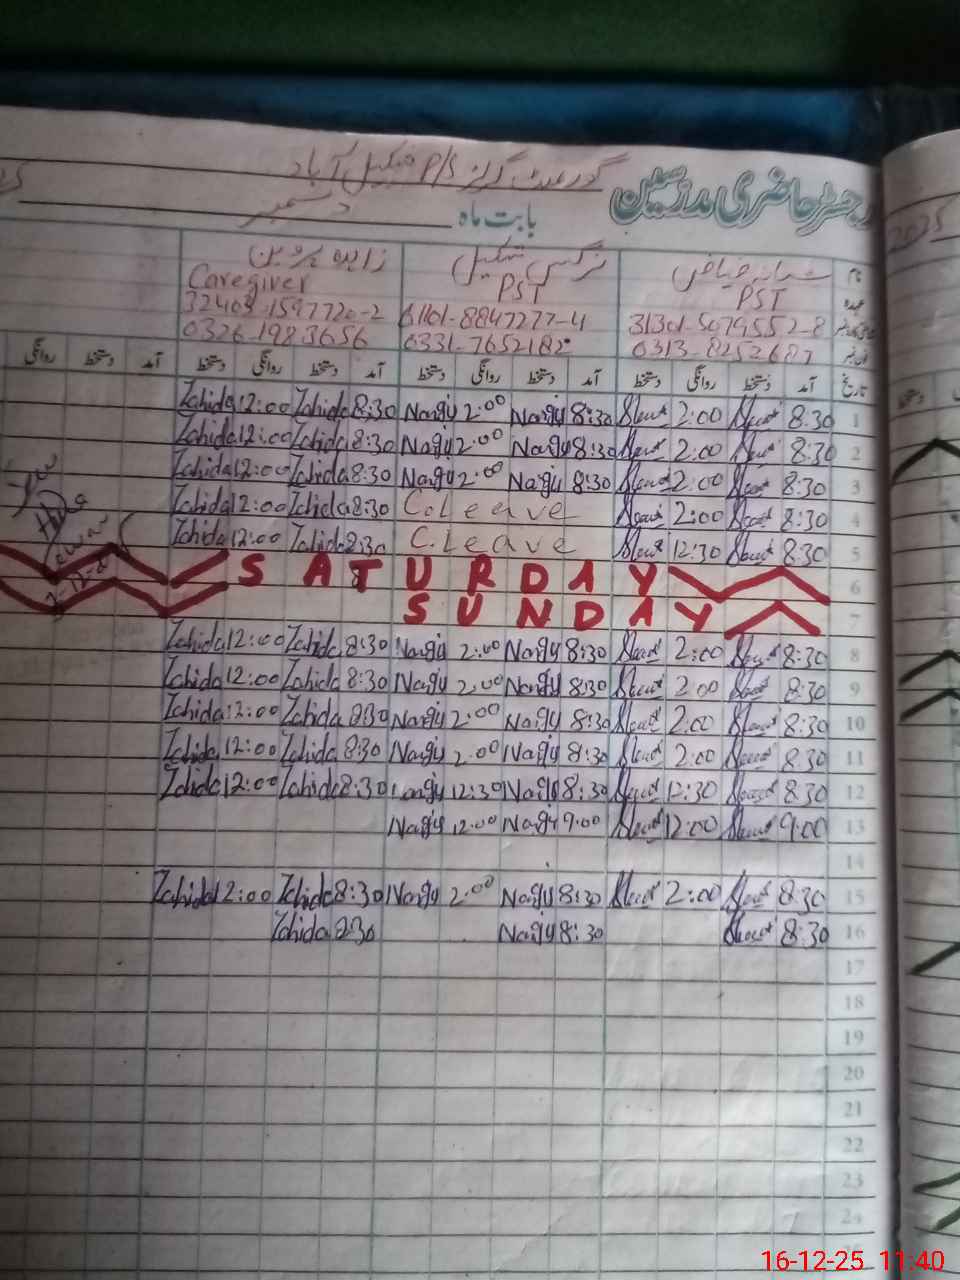 گورنمنٹ گرلز P/S شکیل آباد
رجسٹر حاضری مدرسین
2025
بابت ماہ دسمبر
نام شبانہ فیاض نرگس شکیل زاہدہ پروین
عہدہ PST PST Caregiver
31301-5079552-8 61101-8847277-4 32403-1597720-2
0313-8252687 0331-7652182 0326-1983656
تاریخ آمد دستخط روانگی دستخط آمد دستخط روانگی دستخط آمد دستخط روانگی دستخط آمد دستخط روانگی
1 8:30 2:00 8:30 Nargis 2:00 Nargis 8:30 Zahida 12:00 Zahida
2 8:30 2:00 8:30 Nargis 2:00 Nargis 8:30 Zahida 12:00 Zahida
3 8:30 2:00 8:30 Nargis 2:00 Nargis 8:30 Zahida 12:00 Zahida
4 8:30 2:00 C.Leave 8:30 Zahida 12:00 Zahida
5 8:30 12:30 C.Leave 8:30 Zahida 12:00 Zahida
6 SATURDAY
7 SUNDAY
8 8:30 2:00 8:30 Nargis 2:00 Nargis 8:30 Zahida 12:00 Zahida
9 8:30 2:00 8:30 Nargis 2:00 Nargis 8:30 Zahida 12:00 Zahida
10 8:30 2:00 8:30 Nargis 2:00 Nargis 8:30 Zahida 12:00 Zahida
11 8:30 2:00 8:30 Nargis 2:00 Nargis 8:30 Zahida 12:00 Zahida
12 8:30 12:30 8:30 Nargis 12:30 Nargis 8:30 Zahida 12:00 Zahida
13 9:00 12:00 9:00 Nargis 12:00 Nargis
14
15 8:30 2:00 8:30 Nargis 2:00 Nargis 8:30 Zahida 12:00 Zahida
16 8:30 8:30 Nargis 8:30 Zahida
17
18
19
20
21
22
23
24
16-12-25 11:40